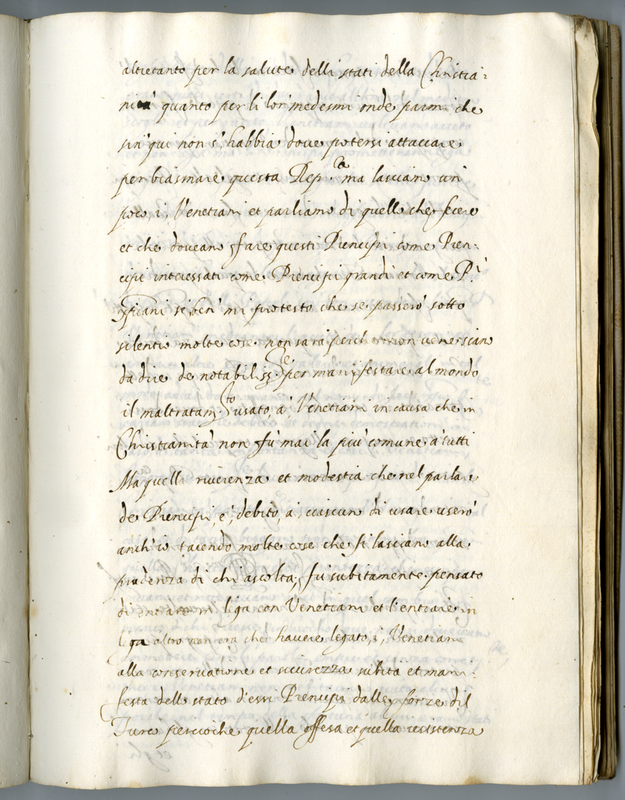 altretanto per la salute delli stati della Christia:
nità quanto per li lor medesmi onde parmi che
sin' qui non s'habbia dove potersi attaccare
per biasmare questa Rep.ca ma lasciamo un
poco, i, Venetiani et parliamo di quello che fecero
et che doveano fare questi Prencipi come Pren:
cipi interessati come Prencipi grandi et come P.i
xpiani se ben' mi protesto che se passerò sotto
silentio molte cose non sarà perche non ve ne siano
da dire de notabiliss.e per manifestare al mondo
il maltratam.to usato, à, Venetiani in causa che in
Christianità non fù mai la più comune à tutti
Ma quella riverenza et modestia che nel parlar
de Prencipi è, debito, à, ciascun di usare userò
anch'io tacendo molte cose che si lasciano alla
prudenza di chi ascolta, fù subitamente pensato
di liga con Venetiani et l'entrare in
liga altro non era che havere legato, i, Venetiani
alla conservatione et sicurezza subita et mani
festa dello stato d'essi Prencipi dalle forze del
Turco percioche quella offesa et quella resistenza